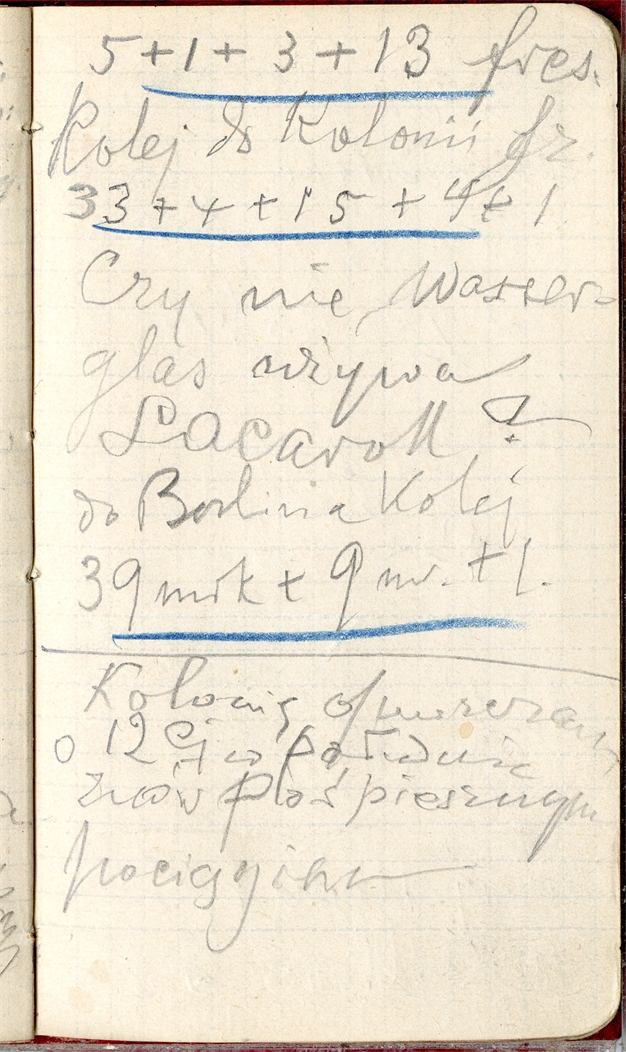 5+1+3+13 frcs.
Kolej do Kolonii fr.
33+4+15+4+1
Czy nie Wasser-
glas używa
do Berlina Kolej
39 mrk + 9 mr. + 1.
Kolonię opuszczam
o 12ej w południe
znów pośpiesznym
pociągiem